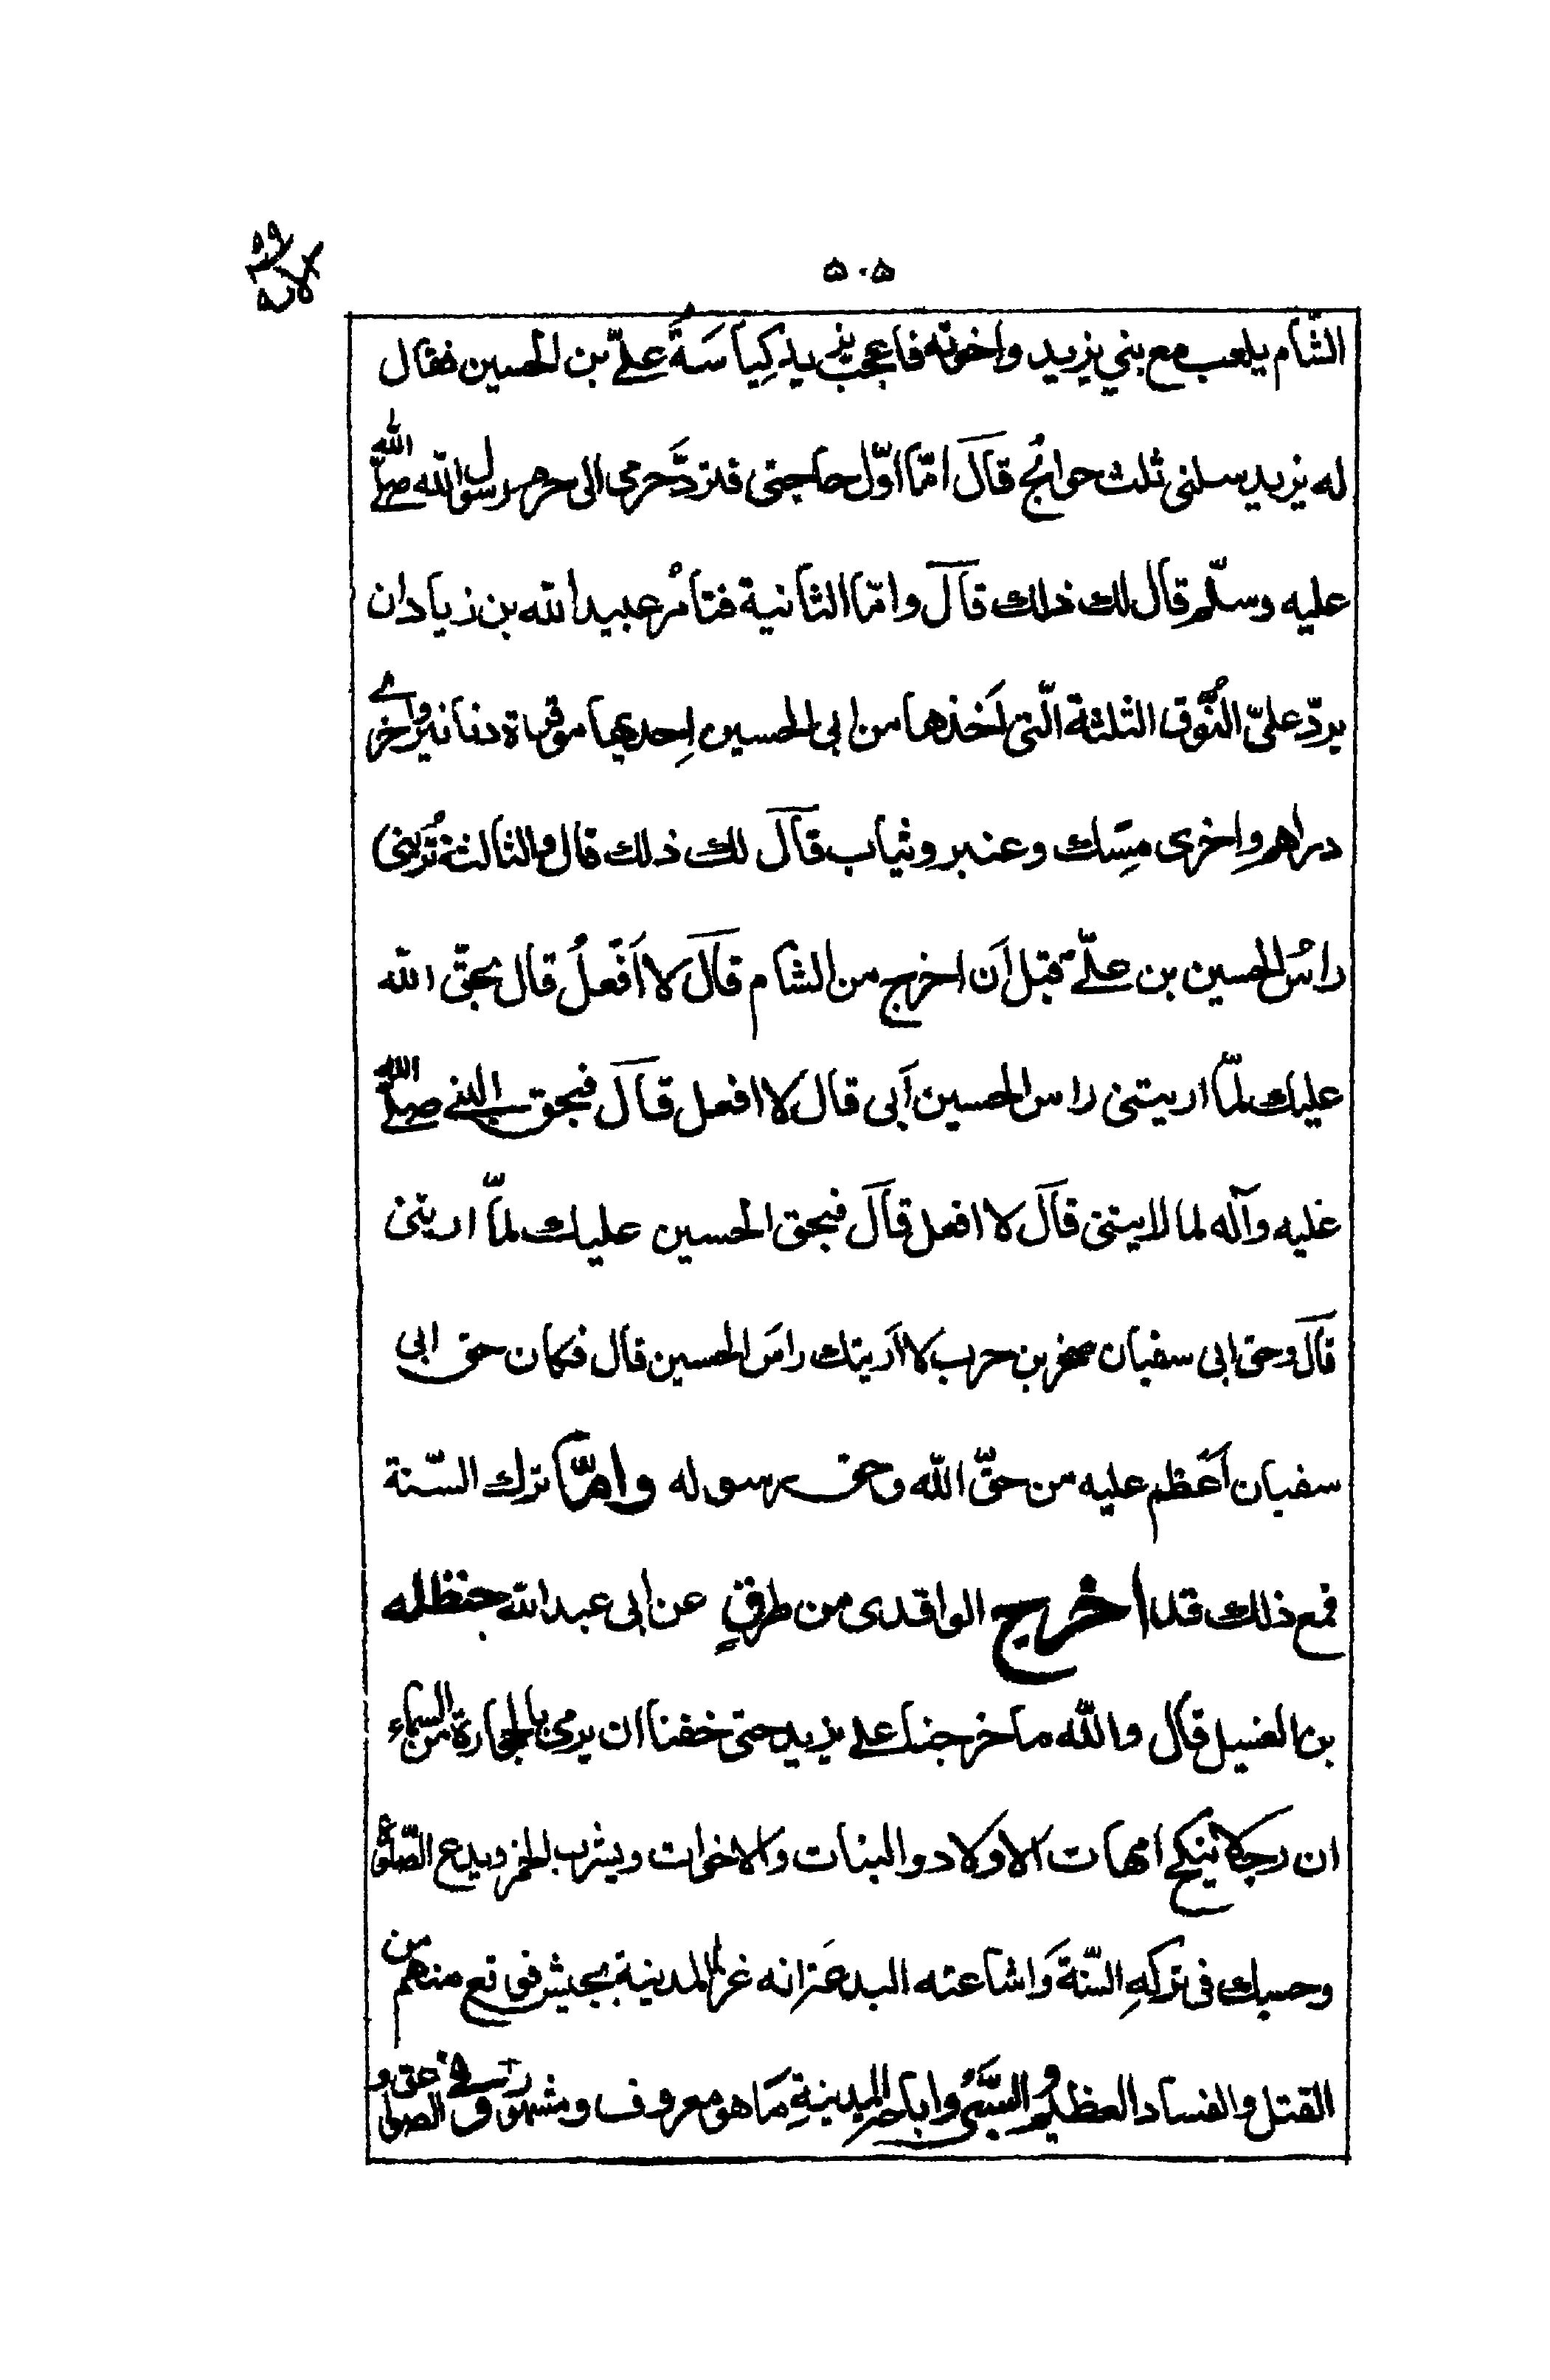 ٥٠٥
الشّام يلعب مع بني يزيد واخوته فاعجب يزيد كِياسَةُ عليّ بن الحسين فقال
له يزيد سلنى ثلث حوائج قالَ امّا اوّل حاجتى فتردَّ حرمى الى حرم رسول الله صلّى الله
عليه وسلّم قال لك ذلك قالَ وامّا الثانية فتامُر عبيد الله بن زياد ان
يردّ علىّ النُّوق الثلثة الّتى اَخذها من ابى الحسين اِحديها موقرة دنانير واخرى
دراهم واخرى مِسك وعنبر وثياب قالَ لك ذلك قال والثالثة تُرينى
راسُ الحسين بن علىّ قبل اَن اخرج من الشام قالَ لا اَفعلُ قال بحقّ الله
عليك لمّا اريتنى راس الحسين اَبى قال لا افعل قالَ فبحق النبى صلّى الله
عليه وآله لما لاريتنى قالَ لا افعل قالَ فبحق الحسين عليك لمّا اريتنى
قالَ وحق ابى سفيان صخر بن حرب لا اَريتك راسَ الحسين قال فكان حق ابى
سفيان اَعظم عليه من حقّ الله وحق رسوله وامّا ترك السّنة
فمع ذلك قد اخرج الواقدى من طرقٍ عن ابى عبد الله حنظله
بن الغسيل قال والله ما خرجنا على يزيد حتى خفنا ان يرمى بالحجارة من السماء
ان رجلا ينكح امهات الاولاد والبنات والاخوات ويشرب الخمر ويدع الصّلوة
وحسبك فى تركهِ السّنةَ واشاعته البدعة انه غزا المدينة بجيش فوقع منهم من
القتل والفساد العظيم والسَّبى واباحة المدينةِ ما هو معروف ومشهور فى الصواعق و